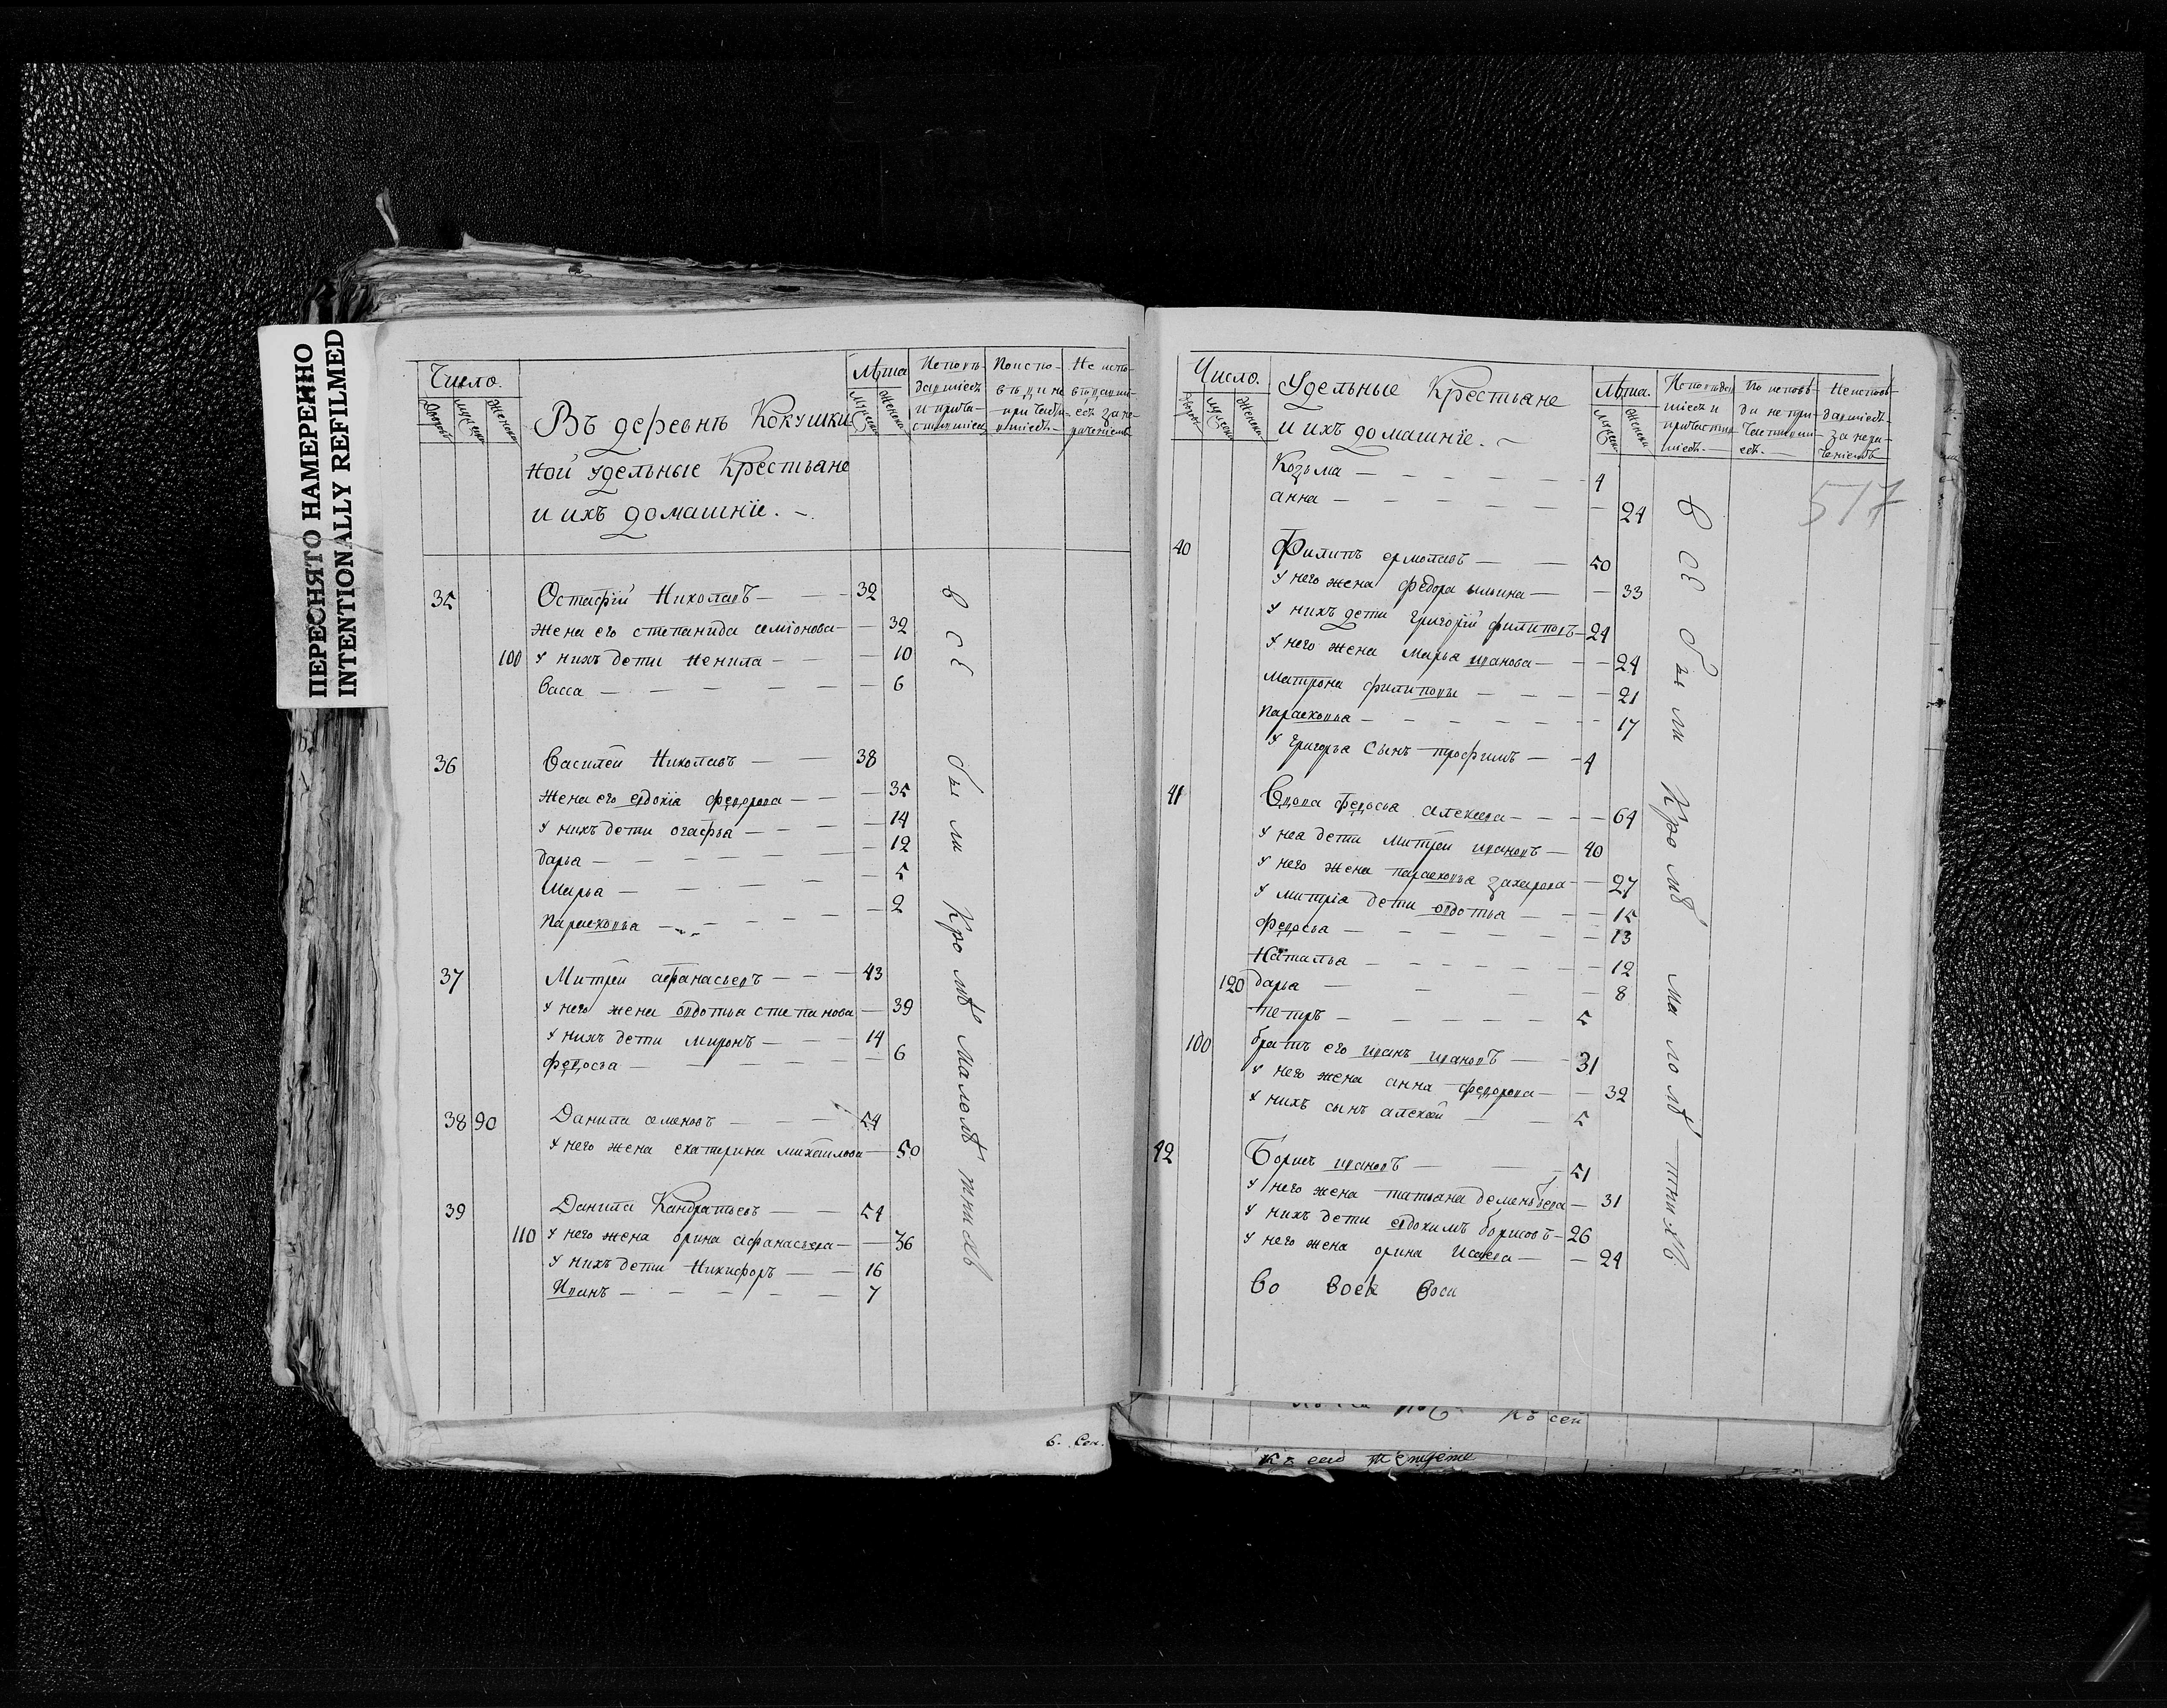 ПЕРЕСНЯТО НАМЕРЕННО
INTENTIONALLY REFILMED
Число.
Дворовъ
Мужеска
Женска
Въ деревнѣ Кокушки
ной удельные Крестьяне
и ихъ домашнїе.
Лѣта
Мужеска
Женска
35 Остафїй Николавъ — 32
жена его степанида семїонова — 32
100 у нихъ дети Ненила — 10
васса — 6
36 Василей Николавъ — 38
жена его евдокїа федорова — 35
у нихъ дети огафьа — 14
дарьа — 12
Марьа — 5
Парасковьа — 2
37 Митрей афанасьевъ — 43
у него жена овдотьа степанова — 39
у нихъ дети миронъ — 14
федосьа — 6
38 90 Данила семеновъ — 54
у него жена екатерина михаилова — 50
39 Данила Кандратьевъ — 54
110 у него жена орина афанасьева — 36
у нихъ дети Никифоръ — 16
Иванъ — 7
всѣ были Кромѣ малолѣтнихъ
6. Сен.
Число.
Дворовъ
Мужеска
Женска
Удельные Крестьяне
и ихъ домашнїе.
Лѣта.
Мужеска
Женска
517
Козьма — 4
анна — 24
40 Филипъ ермолавъ — 50
у него жена федора ильина — 33
у нихъ дети григорїй филиповъ — 24
у него жена Марьа иванова — 24
Матрона филиповы — 21
Парасковьа — 17
у григорьа Сынъ трофимъ — 4
41 Вдова федосьа алексеева — 64
у неа дети митрей ивановъ — 40
у него жена парасковьа захарова — 27
у митрїа дети овдотьа — 15
федосьа — 13
Наталья — 12
120 дарьа — 8
петръ — 5
100 братъ его иванъ ивановъ — 31
у него жена анна федорова — 32
у нихъ сынъ алексей — 5
42 Борисъ ивановъ — 51
у него жена татьана деменьтьева — 31
у нихъ дети евдокимъ борисовъ — 26
у него жена орина Исаева — 24
Во всей
всѣ были Кромѣ малолѣтнихъ.
къ сей